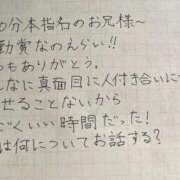 0分本指名のお兄様〜
勤賞なのえらい!!
つもありがとう。
んなに真面目に人付き合いに
せることないから
ごくいい時間だった!
は何についてお話する?